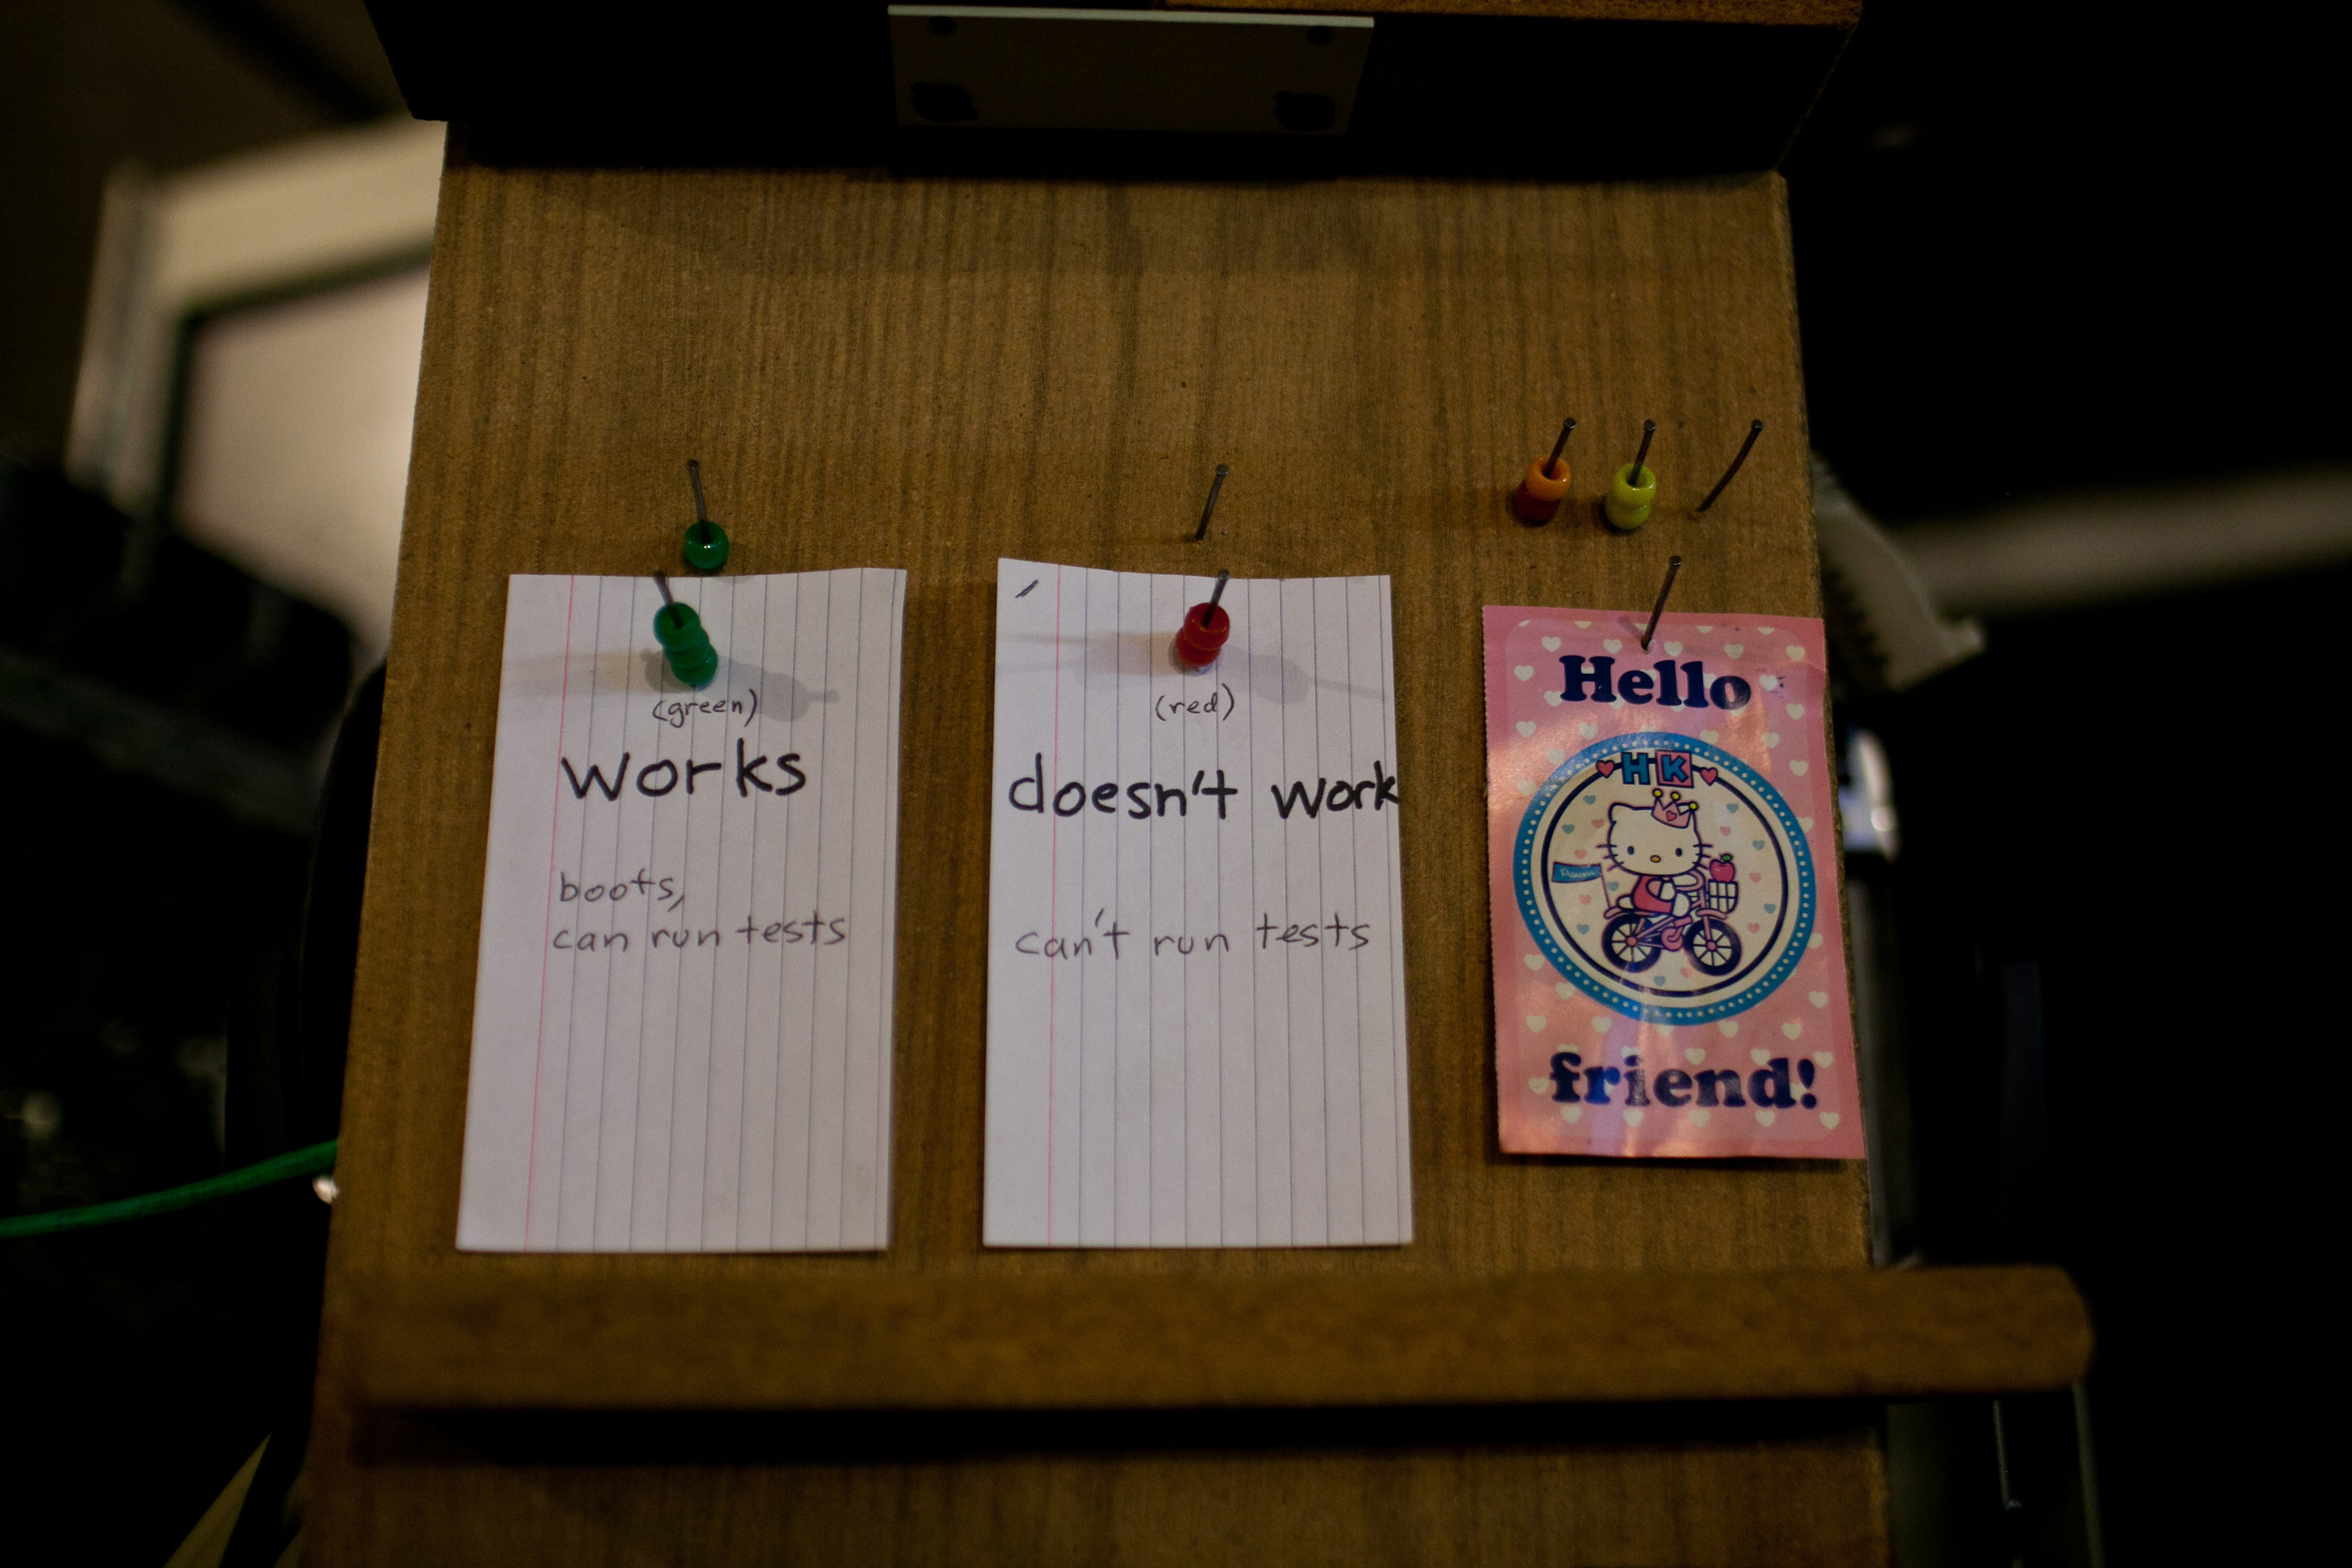 (green)
works
boots,
can run tests
(red)
doesn't work
can't run tests
Hello
HK
friend!